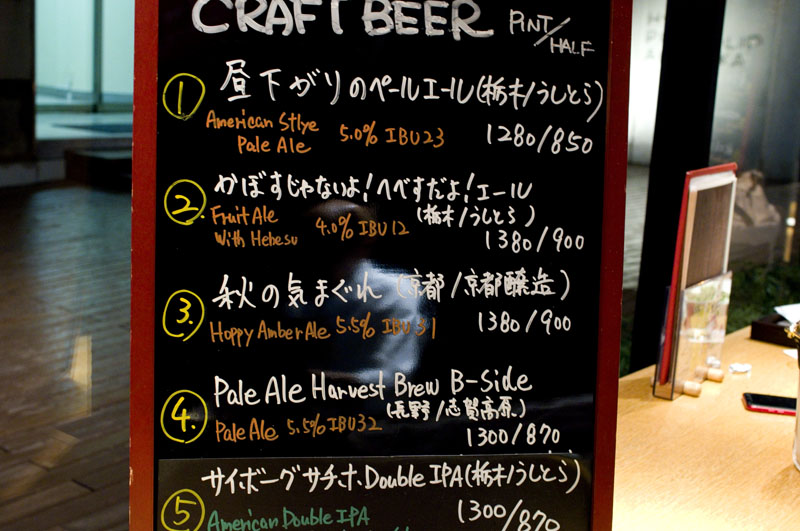 CRAFT BEER PINT/HALF
① 昼下がりのペールエール(栃木/うしとら)
American Stlye
Pale Ale 5.0% IBU23 1280/850
②. かぼすじゃないよ!へべすだよ!エール
Fruit Ale
With Hebesu 4.0% IBU12 (栃木/うしとら) 1380/900
③. 秋の気まぐれ (京都/京都醸造)
Hoppy Amber Ale 5.5% IBU31 1380/900
④. Pale Ale Harvest Brew B-Side
(長野/志賀高原)
Pale Ale 5.5% IBU32 1300/870
⑤ サイボーグサチホ Double IPA(栃木/うしとら)
American Double IPA 1300/870